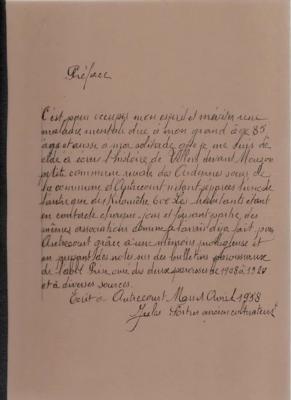 Préface
C'est pour occuper mon esprit et éviter une
maladie mentale due à mon grand âge 85
ans et aussi à ma solitude que je me suis dé
cidé à écrire l'histoire de Villers devant Mouzon
petite commune rurale des Ardennes soeur de
la commune d'Autrecourt l'une de
l'autre que de les habitants étant
en contacts chaque jour et faisant partie des
mêmes associations comme je l'avais déjà fait pour
Autrecourt grâce à une mémoire prodigieuse et
en prenant des notes sur des bulletins paroissiaux
de l'abbé des deux paroisses de 1908 à 1920
et à diverses sources.
Ecrit à Autrecourt Mars Avril 1988
Jules ancien cultivateur